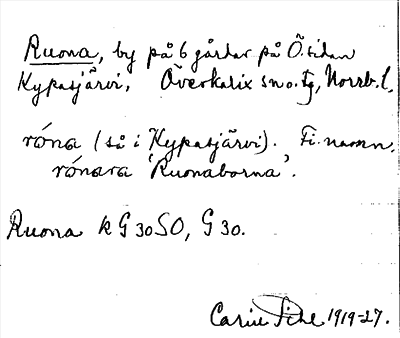 Ruona, by på 6 gårdar på Ö. sidan
Kypasjärvi, Överkalix sn o. tg, Norrb. l.
róna (så i Kypasjärvi). Fi. namn.
rónara 'Ruonaborna'.
Ruona k G 30 SO, G 30.
Carin Pihl 1919-27.